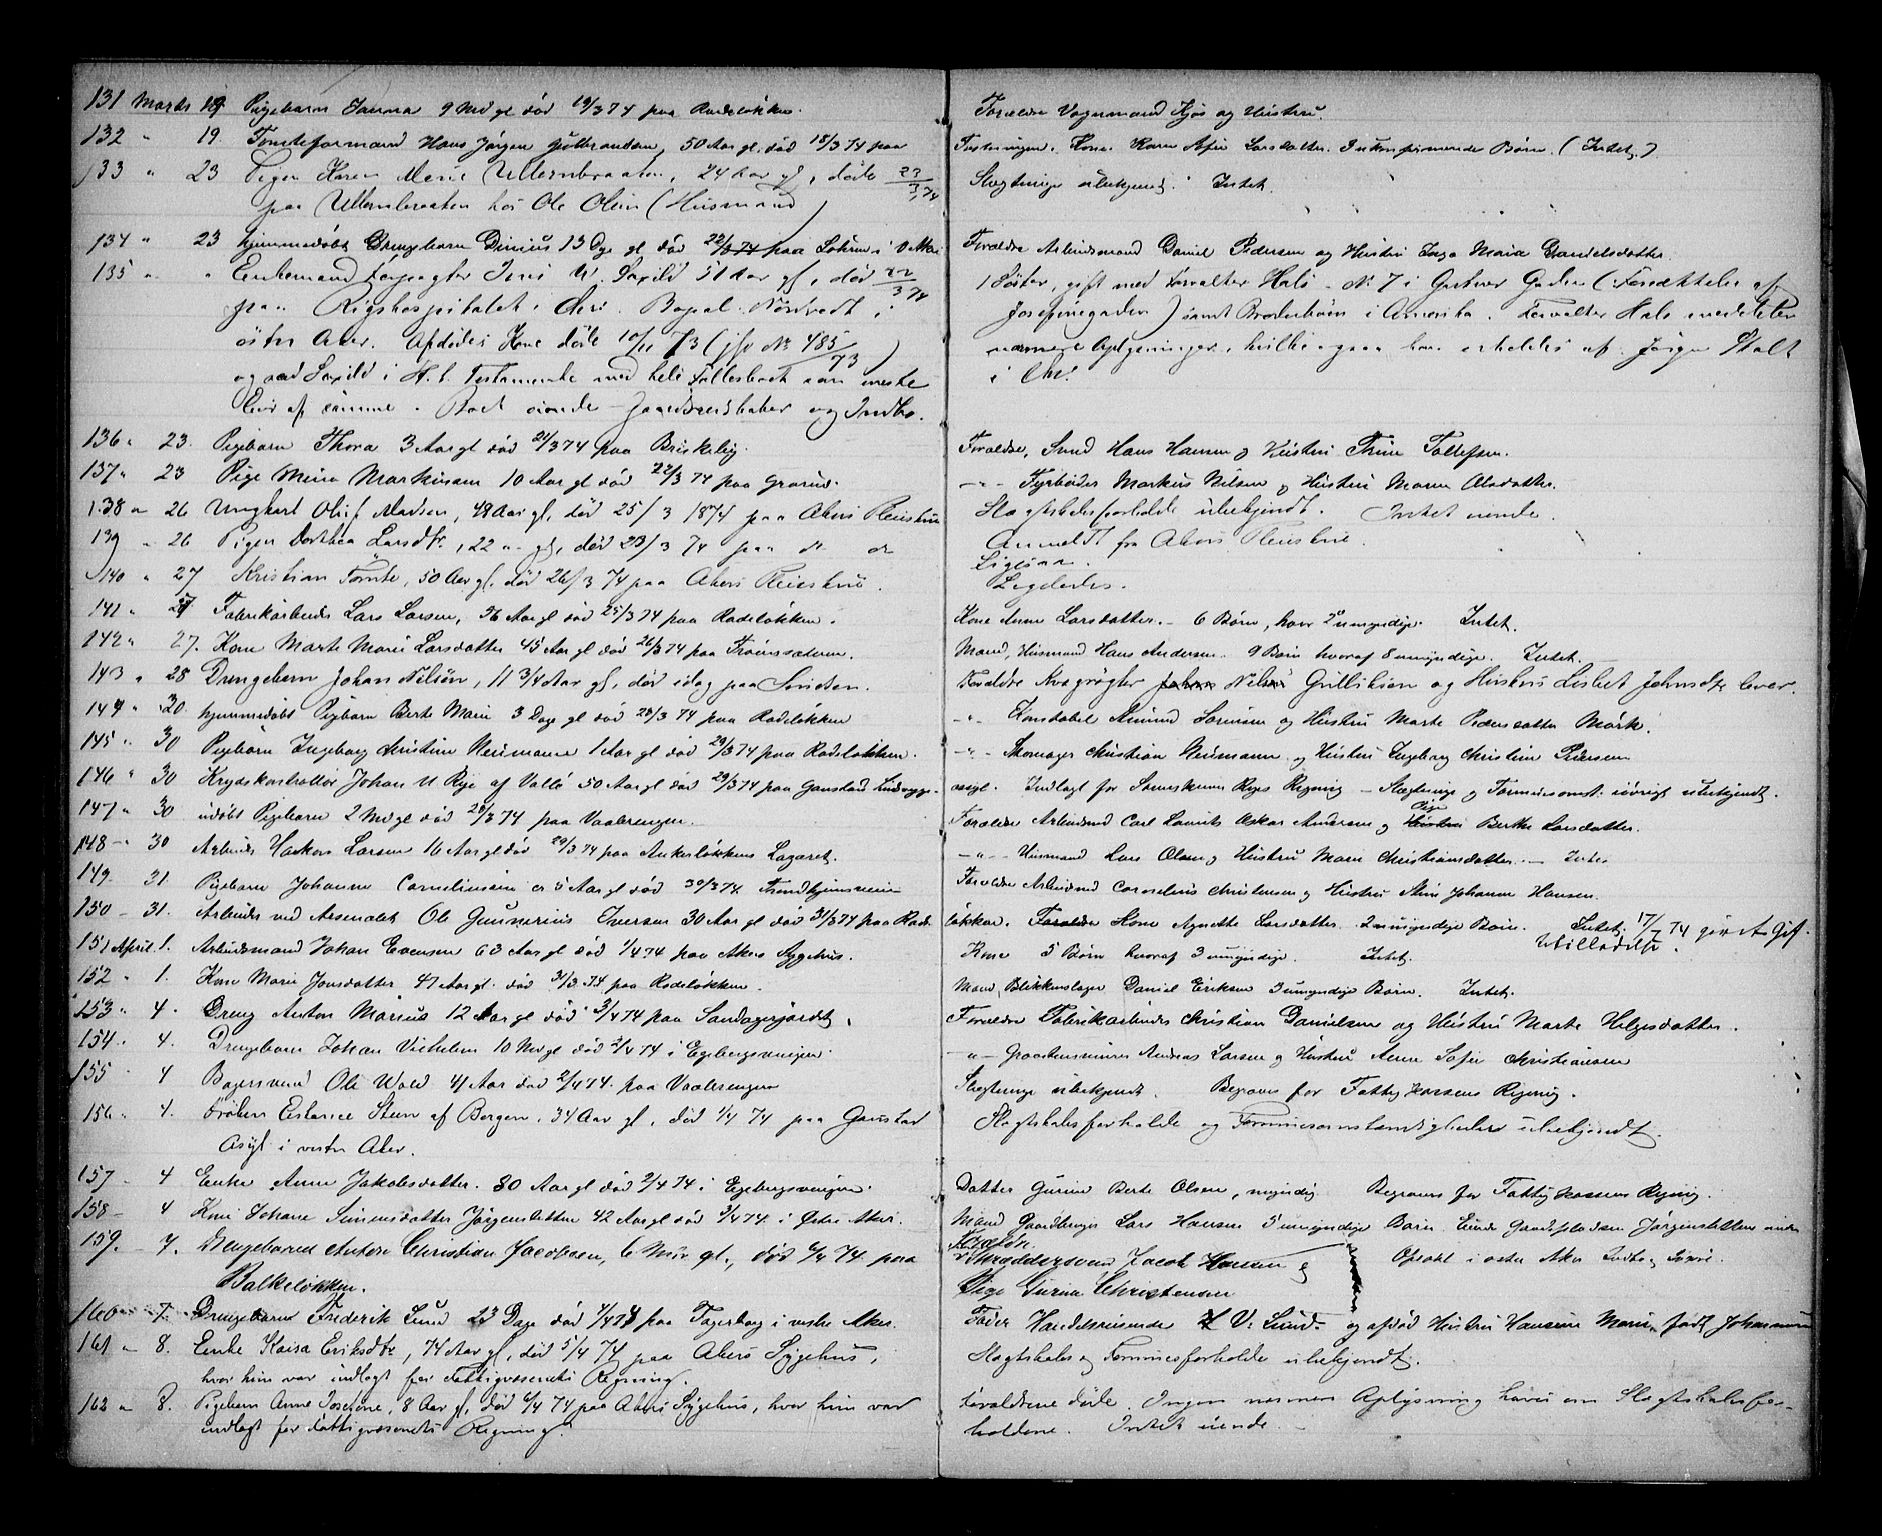 131 Marts 19 Pigebarn Janna 9 Md gl død 19/3 74 paa Rodeløkken. Forældre Vognmand Kjøs og Hustru.
132 " 19. Tomteformand Hans Jørgen Gulbrandsen, 50 Aar gl. død 18/3 74 paa Kone Karen Larsdatter. Børn. (Intet.)
133 " 23 Pigen Karen Marie Ullernbraaten, 24 Aar gl., døde 22/3 74 Slægtninge ubekjendt. Intet.
paa Ullernbraaten hos Ole Olsen (Husmand)
134 " 23 hjemmedøbt Drengebarn 13 Dge gl død 22/3 74 paa i V Aker Forældre Arbeidsmand Daniel Pedersen og Hustru Inga Maria Danielsdatter.
135 " " Enkemand Forpagter Jens W. Saxild 51 Aar gl., død 22/3 74 1 Søster, gift med Forvalter Hals No 7 i Gaden (Forsættelse af
paa Rigshospitalet i Chri. Bopæl i Josefinegaden) samt Broderbørn i Amerika. Forvalter Hals meddeler
østre Aker. Afdødes Kone døde 10/11 73 (jfr No 485/73) nærmere Oplysninger, hvilke ogsaa kan erholdes af Jørgen
og sad Saxild i H. t. Testamente med hele Fællesboet som eneste i Chr.
Eier af samme. Boet eiende Gaardsredskaber og Indbo.
136 " 23. Pigebarn Thora 3 Aar gl død 21/3 74 paa Briskeby. Forældre, Svend Hans Hansen og Hustru Trine Tollefsen.
137 " 23 Pige Mina Markussen 10 Aar gl død 22/3 74 paa Grorud. -"- Fyrbøder Markus Nilsen og Hustru Maren Olsdatter.
138 " 26 Ungkarl Oluf Madsen, 48 Aar gl, død 25/3 1874 paa Akers Pleiestue Slægtskabsforholde ubekjendt. Intet eiende.
139 " 26 Pigen Dorthea Larsdtr., 22 " gl, død 23/3 74 paa do do Anmeldt fra Akers Pleiestue.
Ligesaa.
140 " 27 Kristian Tomte, 50 Aar gl, død 26/3 74 paa Akers Pleiestue. Ligeledes.
141 " 27 Fabrikarbeider Lars Larsen, 36 Aar gl død 25/3 74 paa Rodeløkken. Kone Anne Larsdatter. 6 Børn, hvor 2 umyndige. Intet.
142 " 27. Kone Marte Marie Larsdatter 45 Aar gl død 26/3 74 paa Mand, Husmand Hans Andersen. 9 Børn hvoraf 8 umyndige. Intet.
143 " 28 Drengebarn Johan Nilsen, 11 3/4 Aar gl, død idag paa Forældre Kvægrøgter Johan Nils Gulliksen og Hustru Lisbet Johnsdtr lever.
144 " 30 hjemmedøbt Pigebarn Berte Marie 3 Dage gl død 28/3 74 paa Rodeløkken -"- Konstabel Amund Sørensen og Hustru Marte Pedersdatter Mørk.
145 " 30 Pigebarn Ingeborg Christine Neumann 1 Aar gl død 29/3 74 paa Rodeløkken. -"- Skomager Christian Neumann og Hustru Ingeborg Christine Pedersen
146 " 30 Krydskontrollør Johan M Rye af Vallø 50 Aar gl død 29/3 74 paa Gaustad Sindssyge- asyl. Indlagt for Regning - Slægtninge og Formuesomst. iøvrigt ubekjendt.
147 " 30 udøbt Pigebarn 2 Md gl død 28/3 74 paa Vaalerengen. Forældre Arbeidsmd Carl Laurits Oskar Andersen og Hustru Pige Berthe Larsdatter.
148 - 30 Arbeider Haakon Larsen 16 Aar gl død 29/3 74 paa Ankerløkkens Lazaret. -"- Husmand Lars Olsen og Hustru Maren Christiansdatter. - Intet
149 31. Pigebarn Johanne Corneliussen er 5 Aar gl død 30/3 74 Trondhjemsveien Forældre Arbeidsmd Cornelius Christensen og Hustru Johanne Hansen.
150 - 31. Arbeider ved Arsenalet Ole Gunnerius Iversen 30 Aar gl død 31/3 74 paa Rode- løkken. Forældre Kone Agnethe Larsdatter. 2 umyndige Børn. Intet. 17/7 74 givet Gif-
tetilladelse.
151 April 1. Arbeidsmand Johan Evensen 63 Aar gl død 1/4 74 paa Akers Sygehus. Kone 5 Børn hvoraf 3 umyndige. Intet.
152 " 1. Kone Marie Jonsdatter 47 Aar gl. død 31/3 74 paa Rodeløkken. Mand, Blikkenslager Daniel Eriksen 3 umyndige Børn. Intet.
153 " 4. Dreng Anton Marius 12 Aar gl død 3/4 74 paa Sandagerjordet. Forældre Fabrikarbeider Christian Danielsen og Hustru Marte Helgesdatter.
154 " 4. Drengebarn Johan Vilhelm 10 Md gl død 2/4 74 i Egebergsveigen. -"- Graastensminer Andreas Larsen og Hustru Anne Sofie Christiansen
155 " 4 Bagersvend Ole Wold 41 Aar død 2/4 74. paa Vaalerengen Slægtninge ubekjendt. Begraves for Fattigkassens Regning.
156 " 4. Frøken Stern af Bergen, 34 Aar gl, død 1/4 74 paa Gaustad Slægtskabsforholde og Formuesomstændigheder ubekjendt.
Asyl i vestre Aker.
157 - 4 Enke Anne Jakobsdatter. 80 Aar gl død 2/4 74 i Egebergsveigen. Datter Gurine Berte Olsen, myndig. Begraves for Fattigkassens Regning.
158 - 4 Kone Johane Simensdatter Jørgensletten 42 Aar gl død 2/4 74. i Østre Aker. Mand Gaardbruger Lars Hansen 5 umyndige Børn. Eiende Gaardpladsen Jørgensletten under
159. - 7. Drengebarnet Anders Christian Jacobsen, 6 Mdr gl., død 6/4 74. paa Forældre Skræddersvend Jacob Hansen og Opsahl i østre Aker Indbo
Balkeløkken. Pige Gurina Christensen
160 - 7. Drengebarn Frederik Lund 23 Dage død 7/4 74 paa Fagerborg i vestre Aker. Fader Handelsreisende H V. Lund og afdød Hustru Hansine Marie, født Johannesen
161 " 8. Enke Kaisa Eriksdtr, 74 Aar gl, død 5/4 74 paa Akers Sygehus, Slægtskabs og Formuesforholde ubekjendt.
hvor hun var indlagt for Fattigvæsenets Regning.
162 " 8. Pigebarn Anne Josefine, 8 Aar gl, død 6/4 74 paa Akers Sygehus, hvor hun var Forældrene døde. Ingen nærmere Oplysning haves om Slægtskabsfor-
indlagt for Fattigvæsenets Regning. holdene. Intet eiende.